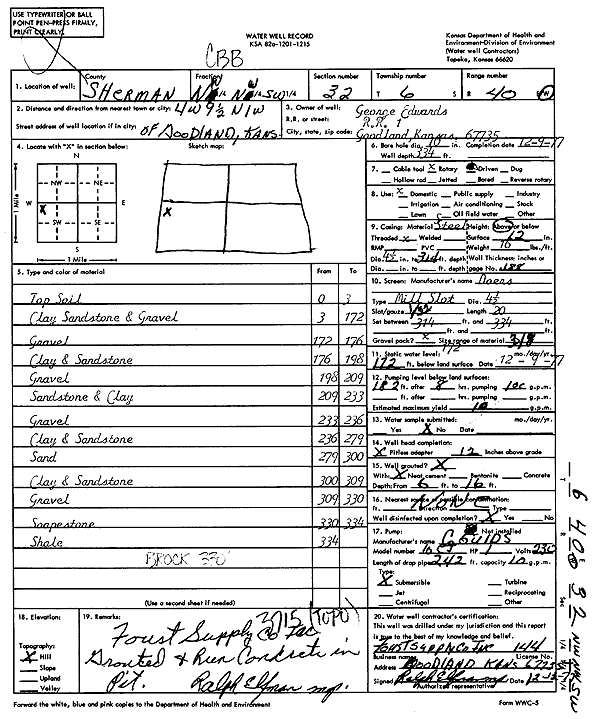 USE TYPEWRITER OR BALL
POINT PEN-PRESS FIRMLY,
PRINT CLEARLY.
WATER WELL RECORD
KSA 82a-1201-1215
Kansas Department of Health and
Environment-Division of Environment
(Water well Contractors)
Topeka, Kansas 66620
CBB
1. Location of well: County SHERMAN Fraction NW 1/4 NW 1/4 SW 1/4 Section number 32 Township number T 6 S Range number R 40 E/W
2. Distance and direction from nearest town or city: 4W 9 1/2 N 1W
Street address of well location if in city: OF GOODLAND, KANS.
3. Owner of well: George Edwards
R.R. or street: R.R. 1
City, state, zip code: Goodland Kansas, 67735
4. Locate with "X" in section below:
Sketch map:
N
NW NE
W E
X
SW SE
S
1 Mile
1 Mile
X
6. Bore hole dia. 10 in. Completion date 12-9-77
Well depth 334 ft.
7. Cable tool X Rotary Driven Dug
Hollow rod Jetted Bored Reverse rotary
8. Use: X Domestic Public supply Industry
Irrigation Air conditioning Stock
Lawn Oil field water Other
9. Casing: Material Steel Height: Above or below
Threaded X Welded Surface 12 in.
RMP PVC Weight 10 lbs./ft.
Dia. 4 1/2 in. to 314 ft. depth Wall Thickness: inches or
Dia. in. to ft. depth gage No. .188
5. Type and color of material From To
Top Soil 0 3
Clay Sandstone & Gravel 3 172
Gravel 172 176
Clay & Sandstone 176 198
Gravel 198 209
Sandstone & Clay 209 233
Gravel 233 236
Clay & Sandstone 236 279
Sand 279 300
Clay & Sandstone 300 309
Gravel 309 330
Soapstone 330 334
Shale 334
BROCK 330'
(Use a second sheet if needed)
10. Screen: Manufacturer's name
Type Mill Slot Dia. 4 1/2
Slot/gauze Length 20
Set between 314 ft. and 334 ft.
ft. and ft.
Gravel pack? X Size range of material 3/8
11. Static water level: 172 mo./day/yr.
172 ft. below land surface Date 12-9-77
12. Pumping level below land surfaces:
182 ft. after 8 hrs. pumping g.p.m.
ft. after hrs. pumping g.p.m.
Estimated maximum yield 10 g.p.m.
13. Water sample submitted: mo./day/yr.
Yes X No Date
14. Well head completion:
X Pitless adapter 12 Inches above grade
15. Well grouted? X
With: X Neat cement Bentonite Concrete
Depth: From 6 ft. to 16 ft.
16. Nearest source of possible contamination:
ft. Direction Type
Well disinfected upon completion? X Yes No
17. Pump: Not installed
Manufacturer's name GOULDS
Model number HP 1 Volts 230
Length of drop pipe 242 ft. capacity 10 g.p.m.
Type:
X Submersible Turbine
Jet Reciprocating
Centrifugal Other
18. Elevation:
Topography:
X Hill
Slope
Upland
Valley
19. Remarks: 3715 (TOPO)
Foust Supply Co Inc
Grouted & Run Concrete in
Pit. Ralph Elfman mp.
20. Water well contractor's certification:
This well was drilled under my jurisdiction and this report
is true to the best of my knowledge and belief.
FOUST SUPPLY Co Inc 144
Business name License No.
Address GOODLAND KANS 67735
Signed Ralph Elfman mp Date
Authorized representative
Forward the white, blue and pink copies to the Department of Health and Environment
Form WWC-5
T 6 R 40 E W Sec 32 NW NW SW 1/4 1/4 1/4